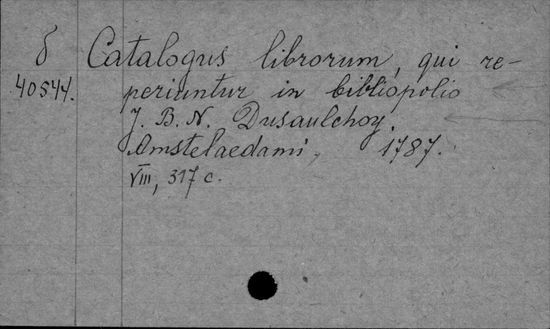 δ Catalogus librorum, qui re-
40544. periuntur in bibliopolio
J. B. N. Dusaulchoy.
Amstelaedami, 1787.
VIII, 317 c.